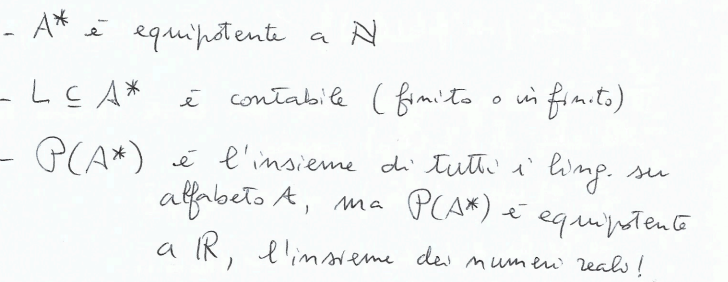 - A* è equipotente a ℕ
- L ⊆ A* è contabile (finito o infinito)
- P(A*) è l'insieme di tutti i ling. su
alfabeto A, ma P(A*) è equipotente
a ℝ, l'insieme dei numeri reali!